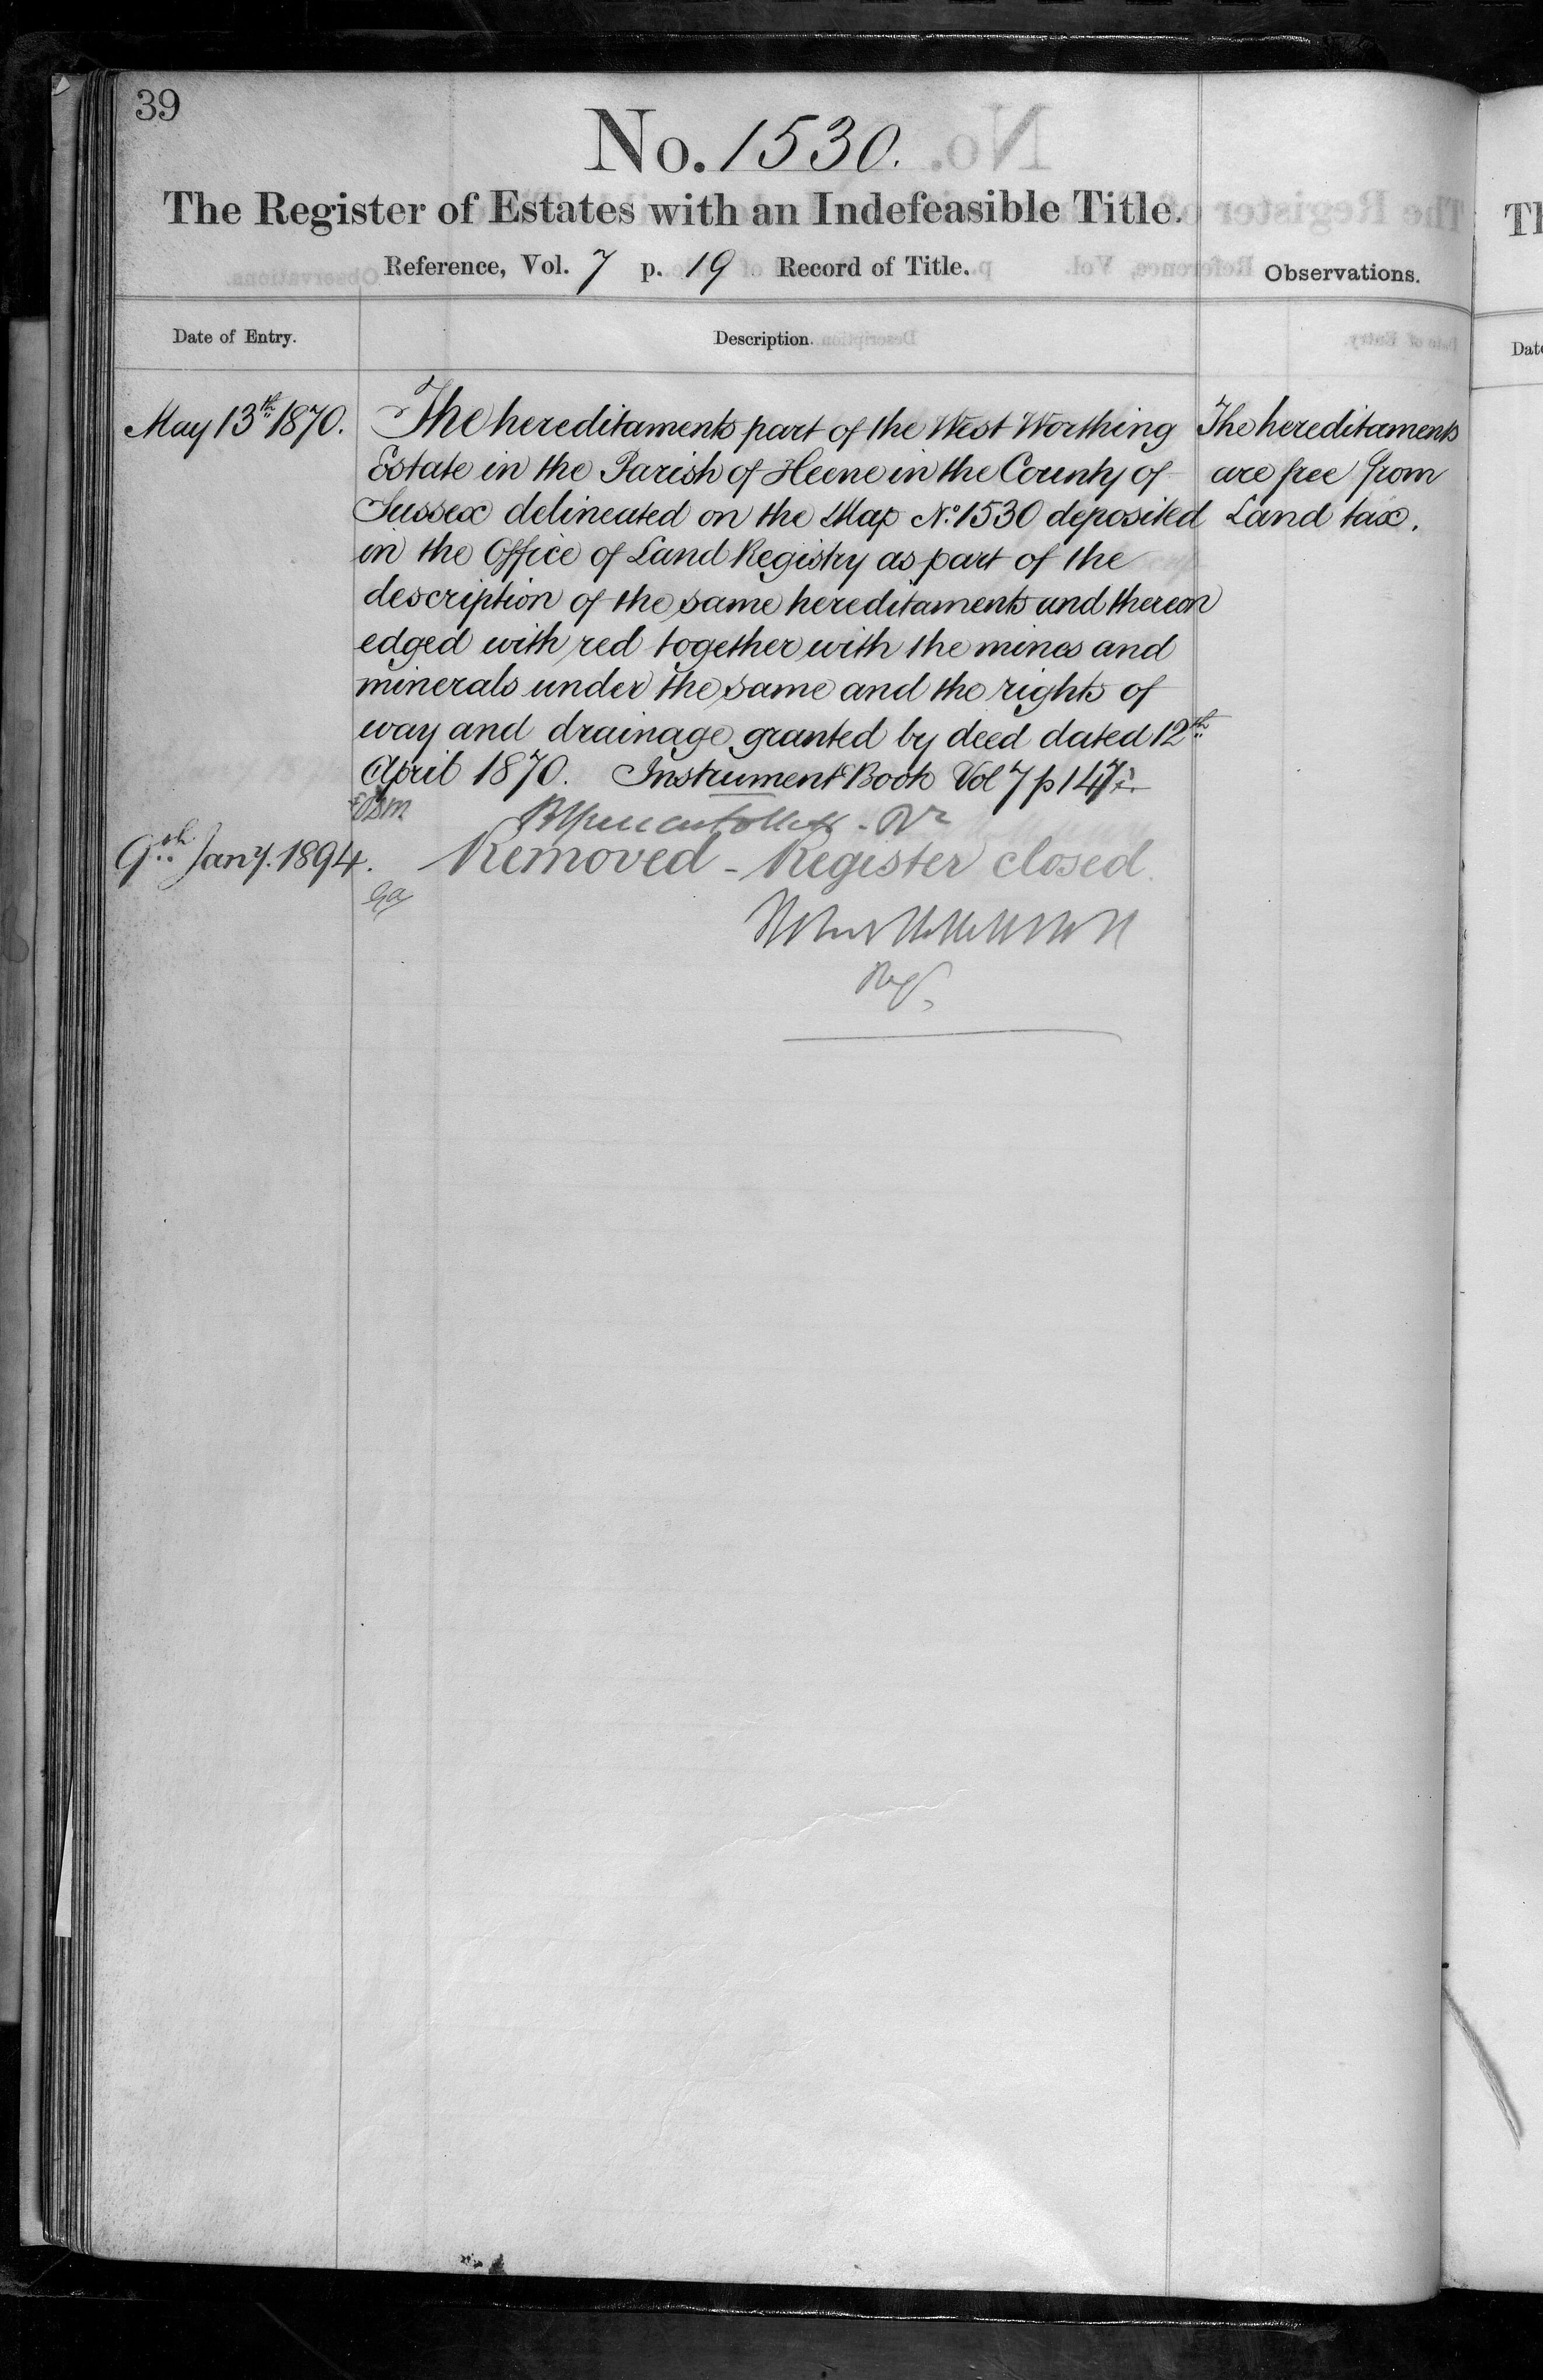 39
No. 1530.
The Register of Estates with an Indefeasible Title.
Reference, Vol. 7 p. 19 Record of Title.
Observations.
Date of Entry.
Description.
May 13th 1870.
The hereditaments part of the West Worthing
Estate in the Parish of Heene in the County of
Sussex delineated on the Map No. 1530 deposited
in the Office of Land Registry as part of the
description of the same hereditaments and thereon
edged with red together with the mines and
minerals under the same and the rights of
way and drainage granted by deed dated 12th
April 1870. Instrument Book Vol 7 p 147
The hereditaments
are free from
Land tax.
9th Jany. 1894.
Removed - Register closed.
Regr.